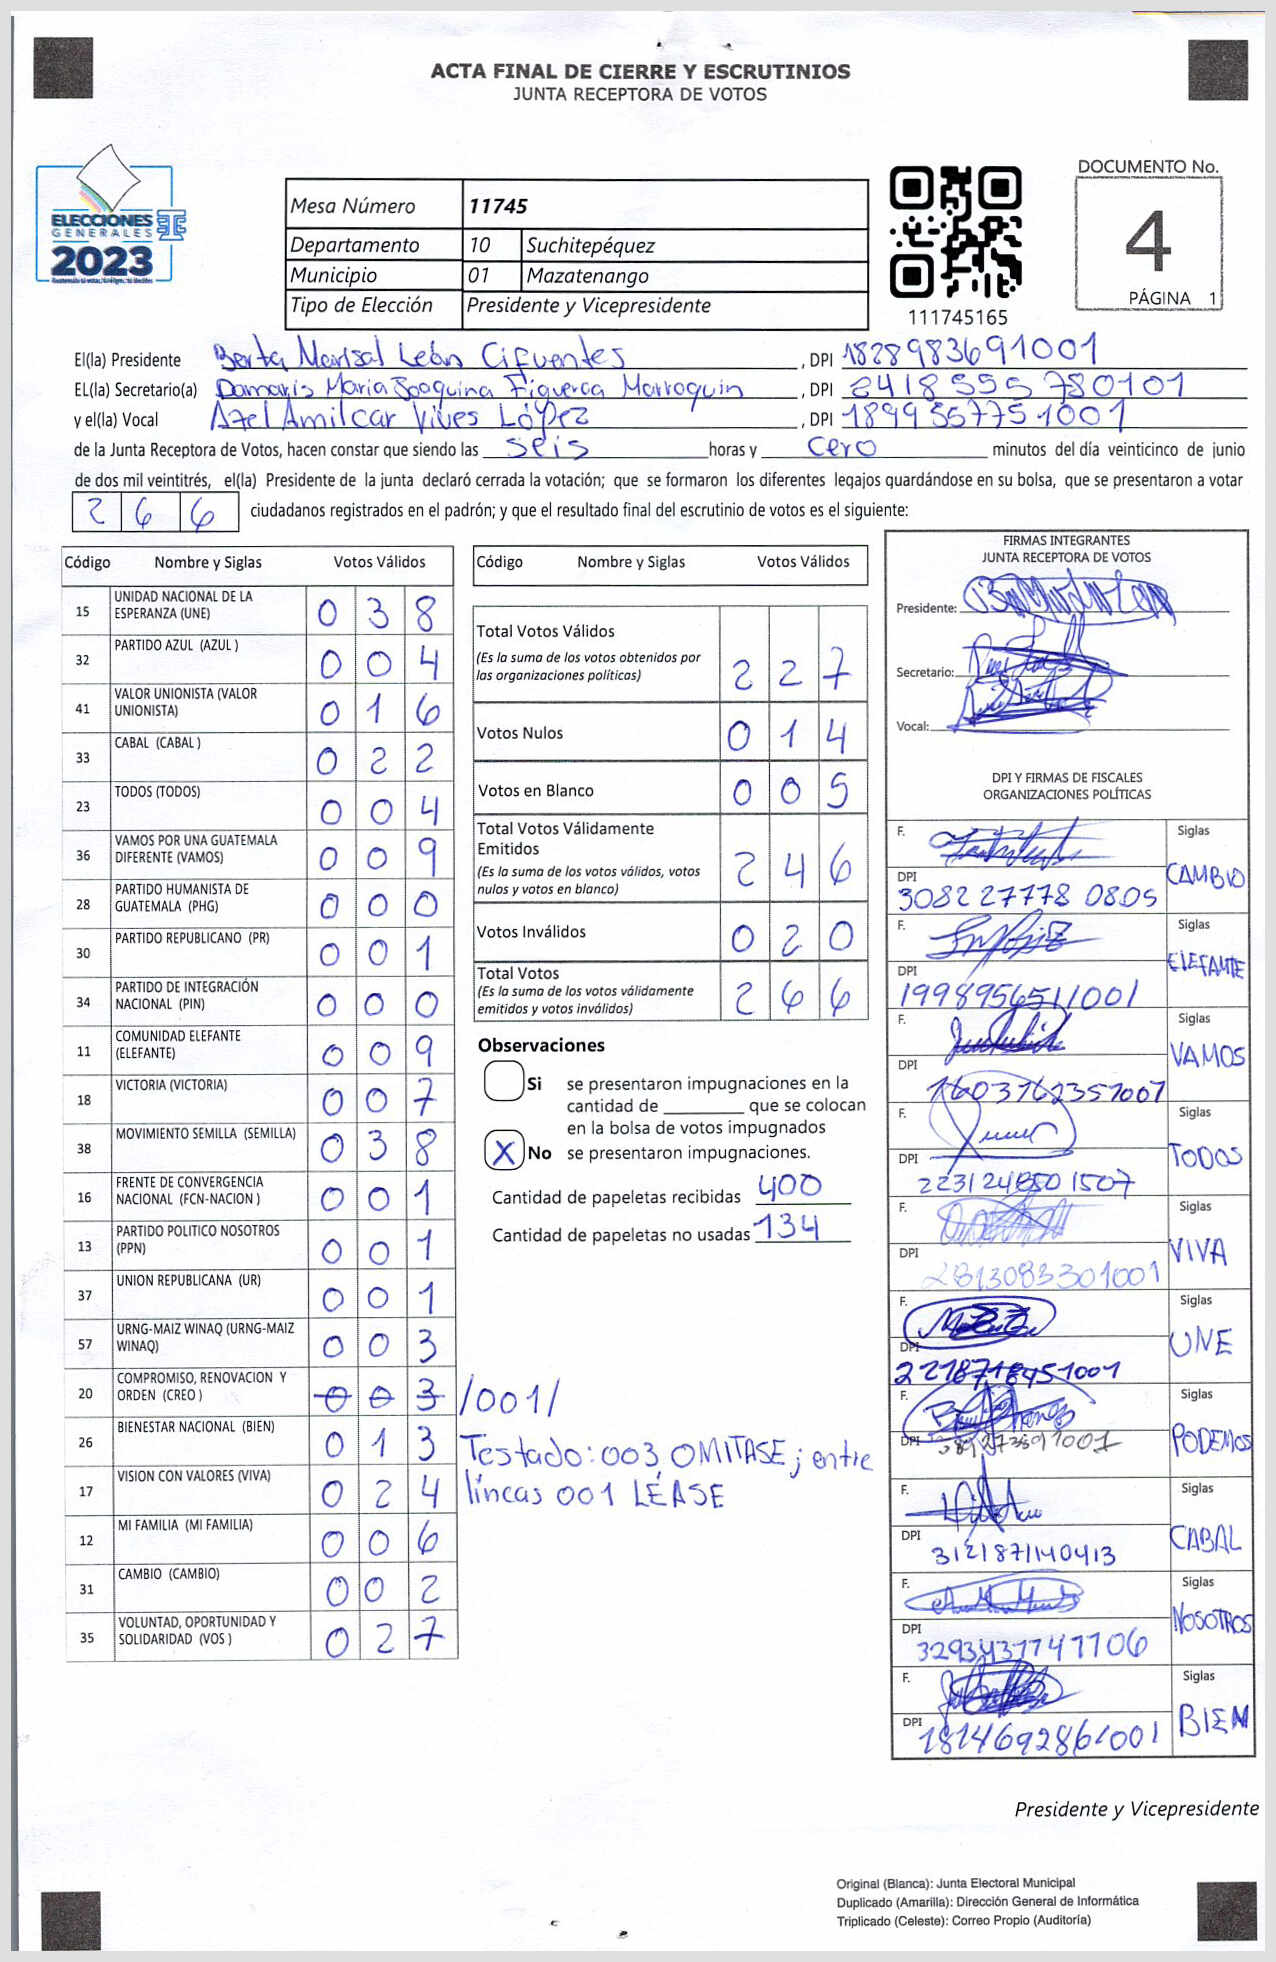 ACTA FINAL DE CIERRE Y ESCRUTINIOS
JUNTA RECEPTORA DE VOTOS
ELECCIONES
GENERALES
2023
Mesa Número 11745
Departamento 10 Suchitepéquez
Municipio 01 Mazatenango
Tipo de Elección Presidente y Vicepresidente
111745165
DOCUMENTO No.
4
PÁGINA 1
El(la) Presidente Berta Marisal León Cifuentes, DPI 1828983691001
EL(la) Secretario(a) Damaris Maria Joaquina Figueroa Marroquin, DPI 2418555780101
y el(la) Vocal Azel Amilcar Vives López, DPI 1899557751001
de la Junta Receptora de Votos, hacen constar que siendo las seis horas y cero minutos del día veinticinco de junio
de dos mil veintitrés, el(la) Presidente de la junta declaró cerrada la votación; que se formaron los diferentes legajos guardándose en su bolsa, que se presentaron a votar
266 ciudadanos registrados en el padrón; y que el resultado final del escrutinio de votos es el siguiente:
Código Nombre y Siglas Votos Válidos
15 UNIDAD NACIONAL DE LA ESPERANZA (UNE) 0 3 8
32 PARTIDO AZUL (AZUL ) 0 0 4
41 VALOR UNIONISTA (VALOR UNIONISTA) 0 1 6
33 CABAL (CABAL ) 0 2 2
23 TODOS (TODOS) 0 0 4
36 VAMOS POR UNA GUATEMALA DIFERENTE (VAMOS) 0 0 9
28 PARTIDO HUMANISTA DE GUATEMALA (PHG) 0 0 0
30 PARTIDO REPUBLICANO (PR) 0 0 1
34 PARTIDO DE INTEGRACIÓN NACIONAL (PIN) 0 0 0
11 COMUNIDAD ELEFANTE (ELEFANTE) 0 0 9
18 VICTORIA (VICTORIA) 0 0 7
38 MOVIMIENTO SEMILLA (SEMILLA) 0 3 8
16 FRENTE DE CONVERGENCIA NACIONAL (FCN-NACION ) 0 0 1
13 PARTIDO POLITICO NOSOTROS (PPN) 0 0 1
37 UNION REPUBLICANA (UR) 0 0 1
57 URNG-MAIZ WINAQ (URNG-MAIZ WINAQ) 0 0 3
20 COMPROMISO, RENOVACION Y ORDEN (CREO ) 0 0 3 /001/
26 BIENESTAR NACIONAL (BIEN) 0 1 3
17 VISION CON VALORES (VIVA) 0 2 4
12 MI FAMILIA (MI FAMILIA) 0 0 6
31 CAMBIO (CAMBIO) 0 0 2
35 VOLUNTAD, OPORTUNIDAD Y SOLIDARIDAD (VOS ) 0 2 7
Testado: 003 OMITASE; entre
líneas 001 LÉASE
Código Nombre y Siglas Votos Válidos
Total Votos Válidos
(Es la suma de los votos obtenidos por
las organizaciones políticas) 2 2 7
Votos Nulos 0 1 4
Votos en Blanco 0 0 5
Total Votos Válidamente
Emitidos
(Es la suma de los votos válidos, votos
nulos y votos en blanco) 2 4 6
Votos Inválidos 0 2 0
Total Votos
(Es la suma de los votos válidamente
emitidos y votos inválidos) 2 6 6
Observaciones
Si se presentaron impugnaciones en la
cantidad de ________ que se colocan
en la bolsa de votos impugnados
X No se presentaron impugnaciones.
Cantidad de papeletas recibidas 400
Cantidad de papeletas no usadas 134
FIRMAS INTEGRANTES
JUNTA RECEPTORA DE VOTOS
Presidente:
Secretario:
Vocal:
DPI Y FIRMAS DE FISCALES
ORGANIZACIONES POLÍTICAS
F. Siglas
DPI CAMBIO
3082 27778 0805
F. Siglas
DPI ELEFANTE
1998956511001
F. Siglas
DPI VAMOS
1603762351001
F. Siglas
DPI TODOS
2231248501507
F. Siglas
DPI VIVA
2813083301001
F. Siglas
DPI UNE
2218718451001
F. Siglas
DPI PODEMOS
F. Siglas
DPI CABAL
3121871140413
F. Siglas
DPI NOSOTROS
F. Siglas
DPI BIEN
1814692861001
Presidente y Vicepresidente
Original (Blanca): Junta Electoral Municipal
Duplicado (Amarilla): Dirección General de Informática
Triplicado (Celeste): Correo Propio (Auditoría)